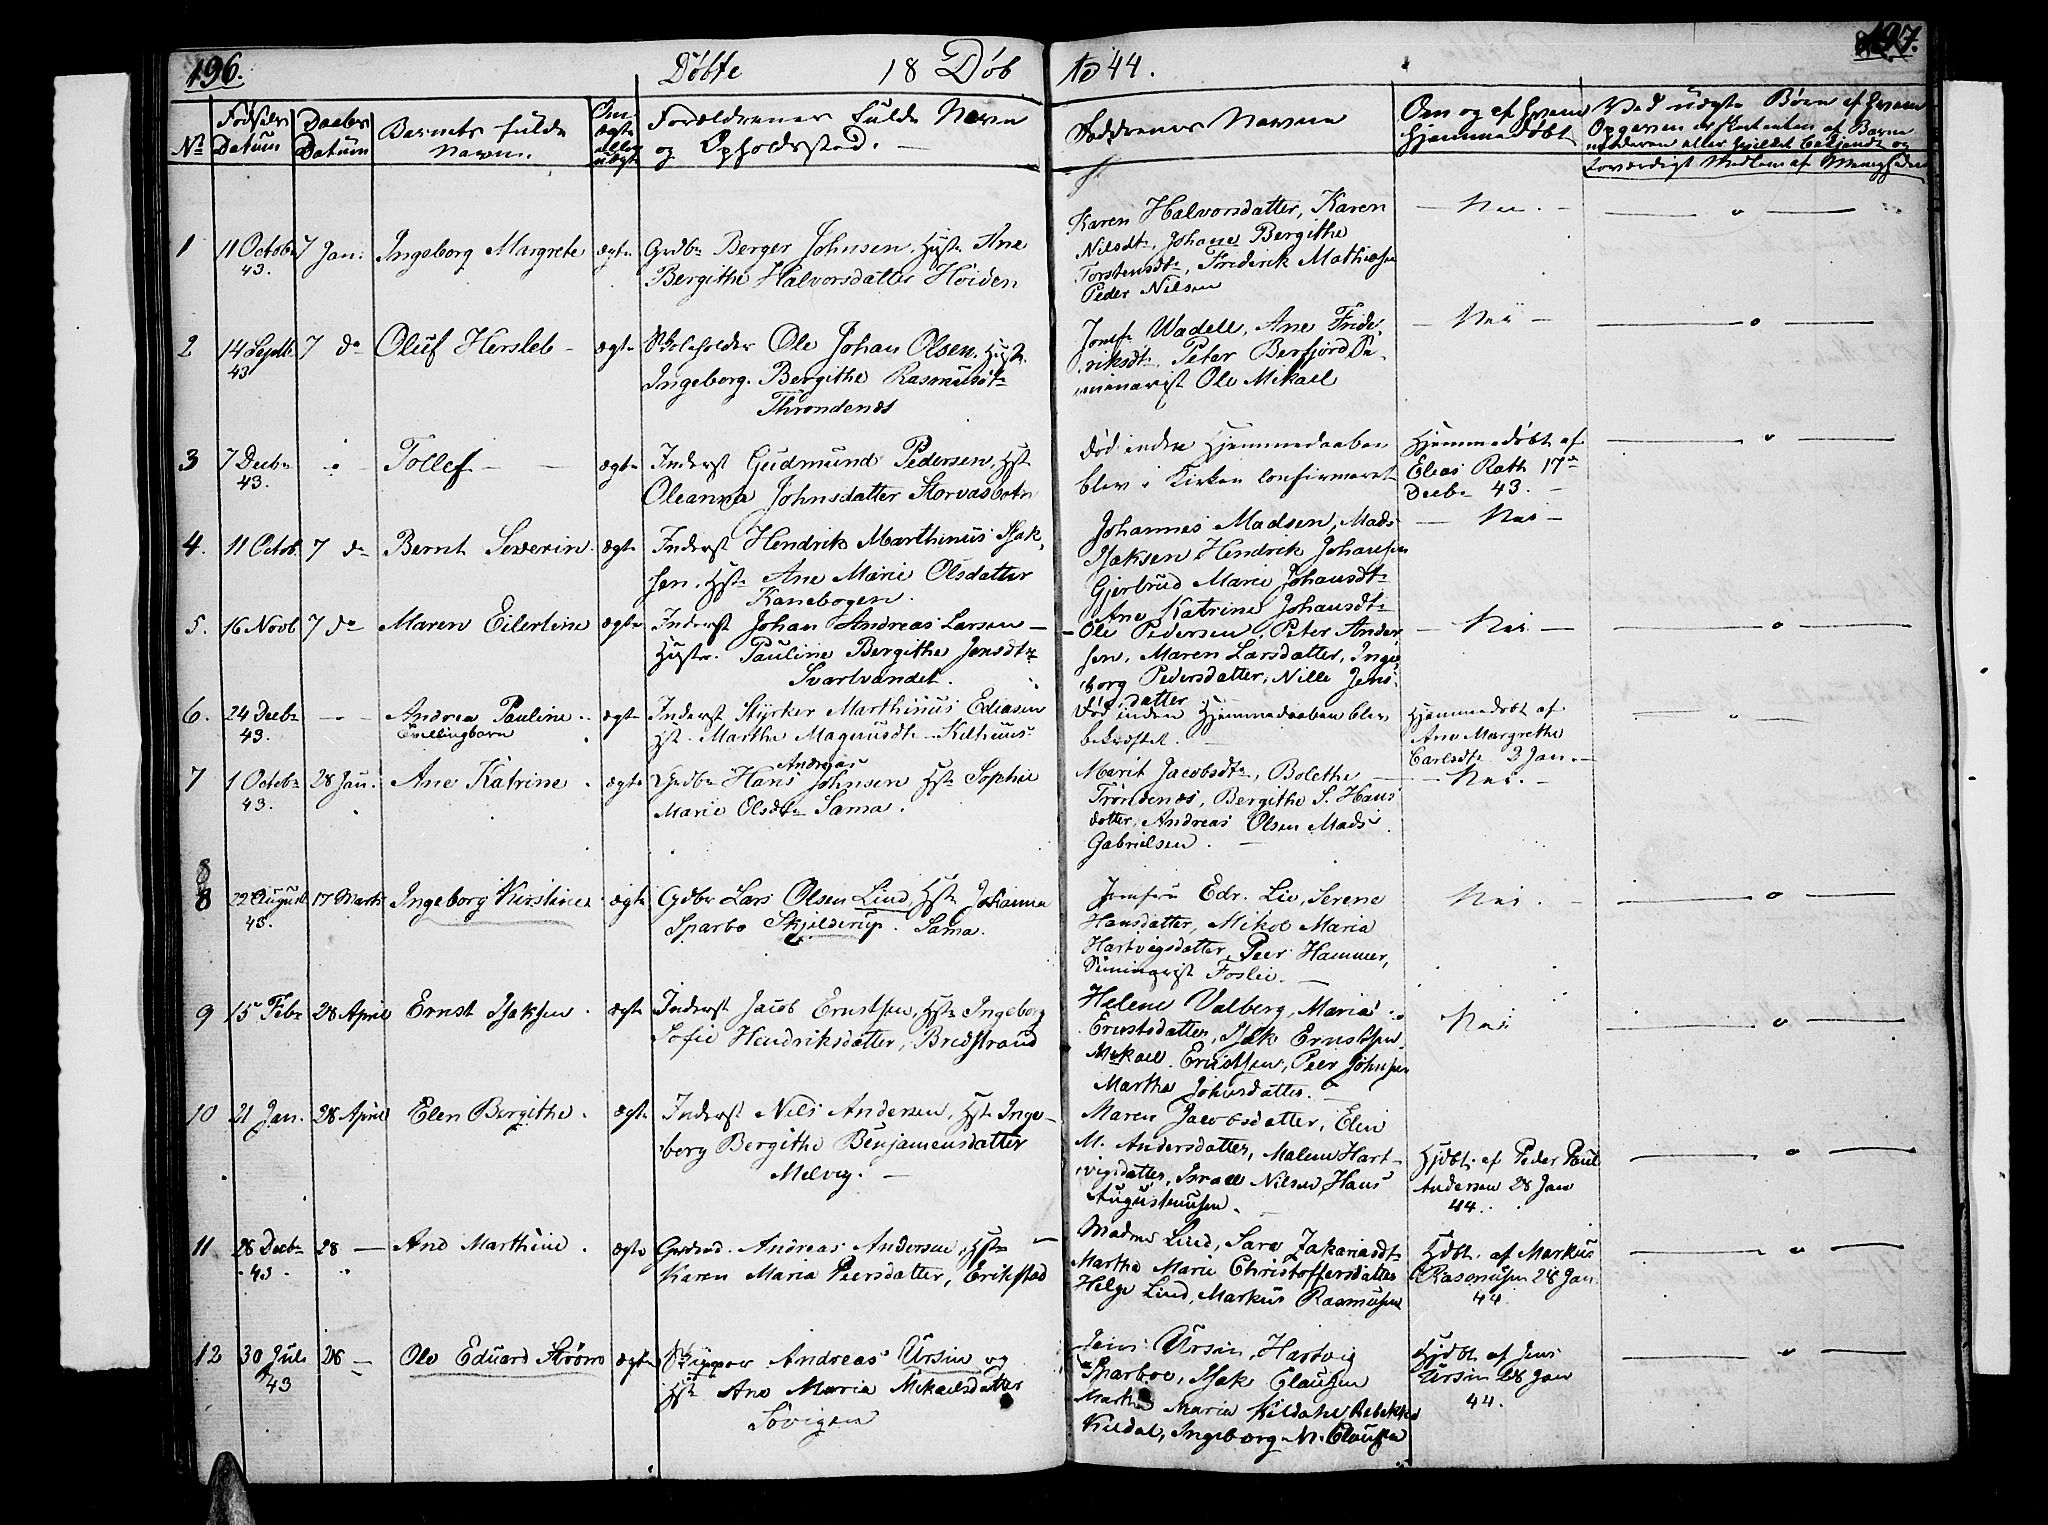 196.
Døbte 18 Døb
te 44.
197.
No
Fødsels Datum
Daabs Datum
Barnets fulde Navn.
Om ægte eller uægte
Forældrenes fulde Navn og Opholdssted.
Faddrenes Navne
Om og af hvem hjemmedøbt
Ved uægte Børn af hvem
1
11 Octobr 43.
7 Jan.
Ingeborg Margrete
ægte
Grdbr Berger Johnsen, Hustr Ane
Bergithe Halvorsdatter Høiden
Karen Halvorsdatter, Karen
Nilsdtr, Johane Bergithe
Torstensdtr, Frederik Mathiesen
Peder Nilsen
Nei.
2
14 Septb 43
7 do
Oluf Hersleb
ægte
Skoleholder Ole Johan Olsen. Hustr
Ingeborg Bergithe Rasmusdtr
Throndenæs
Wadell, Ane Fride-
riksdtr. Peter Berfjord Se-
minarist Ole Mikael
Nei
3
7 Decbr 43.
Tollef
ægte
Inderst Gudmund Pedersen, Hst
Oleanna Johnsdatter Storvasbotn
død inden Hjemmedaaben
blev i Kirken confirmeret
Hjemmedøbt af
Elias Rath 17de
Decbr 43.
4.
11 Octob.
7 do
Bernt Severin
ægte
Inderst Hendrik Marthinus Isak-
sen. Hst Ane Marie Olsdatter
Kanebogen.
Johannes Madsen, Mads
Isaksen, Hendrik Johansen
Gjertrud Marie Johansdtr
Ane Katrine Johansdtr
Nei
5.
16 Novb
7 do
Maren Eilertine
ægte
Inderst Johan Andreas Larsen
Hustr. Pauline Bergithe Jensdtr
Svartvandet.
Ole Pedersen, Peter Ander-
sen, Maren Larsdatter, Inge-
borg Pedersdatter, Nille Jens-
datter
Nei
6.
24 Decbr 43.
Andrea Pauline
Tvillingbarn
ægte
Inderst Styrker Marthinus Eliasen
Hst. Marthe Magnusdtr Kilhuus
død inden Hjemmedaaben blev
bekræftet.
Hjemmedøbt af
Ane Margrethe
Carlsdtr 3 Jan.
7
1 Octobr 43.
28 Jan.
Ane Katrine
ægte
Andreas
Grdbr Hans Johnsen Hst Sophie
Marie Olsdtr Sama.
Marit Jacobsdtr, Bolethe
Trondenæs, Bergithe S. Hans
datter, Andreas Olsen Mads
Gabrielsen.
Nei.
8
8
22 August 43.
17 Marts
Ingeborg Kirstine
ægte
Grdbr Lars Olsen Lind, Hst Johanna
Sparbo Skjelderup. Sama.
Jomfru Edr. Lie, Serene
Hansdatter, Mikol Maria
Hartvigsdatter, Peer Hammer,
Seminarist Foslie.
Nei.
9
15 Febr
28 April
Ernst Isaksen
ægte
Inderst Jacob Ernstsen, Hst Ingeborg
Sofie Hendriksdatter, Bredstrand
Helene Valberg, Maria
Ernstsdatter, Isak Ernstsen
Mikael Ernstsen, Peer Johnsen
Martha Johnsdatter.
Nei
10
21 Jan.
28 April
Elen Bergithe.
ægte
Inderst Nils Andersen, Hst Inge-
borg Bergithe Benjamensdatter
Melvig.
Maren Jacobsdatter, Elen
M. Andersdatter, Malene Hart-
vigsdatter, Israel Nilsen, Hans
Augustinusen.
Hjdbt. af Peder Paul
Andersen 28 Jan
44.
11
28 Decbr 43.
28
Ane Marthine.
ægte
Andreas Andersen, Hstr
Karen Maria Peersdatter, Erikstad
Madme Lind, Sara Zakariasdtr
Martha Marie Christoffersdatter
Helge Lind, Markus Rasmusen
Hdbt. af Markus
Rasmusen 28 Jan.
44.
12
30 Juli 43
28
Ole Eduard Strøm
ægte
Skipper Andreas Ursin og
Hst Ane Maria Mikaelsdatter
Sørvigen
Jens Ursin, Hartvig
Sparboe, Isak Clausen
Martha Maria Kildahl Rebekka
Kildal, Ingeborg M. Clausen
Hjdbt af Jens
Ursin 28 Jan
44.